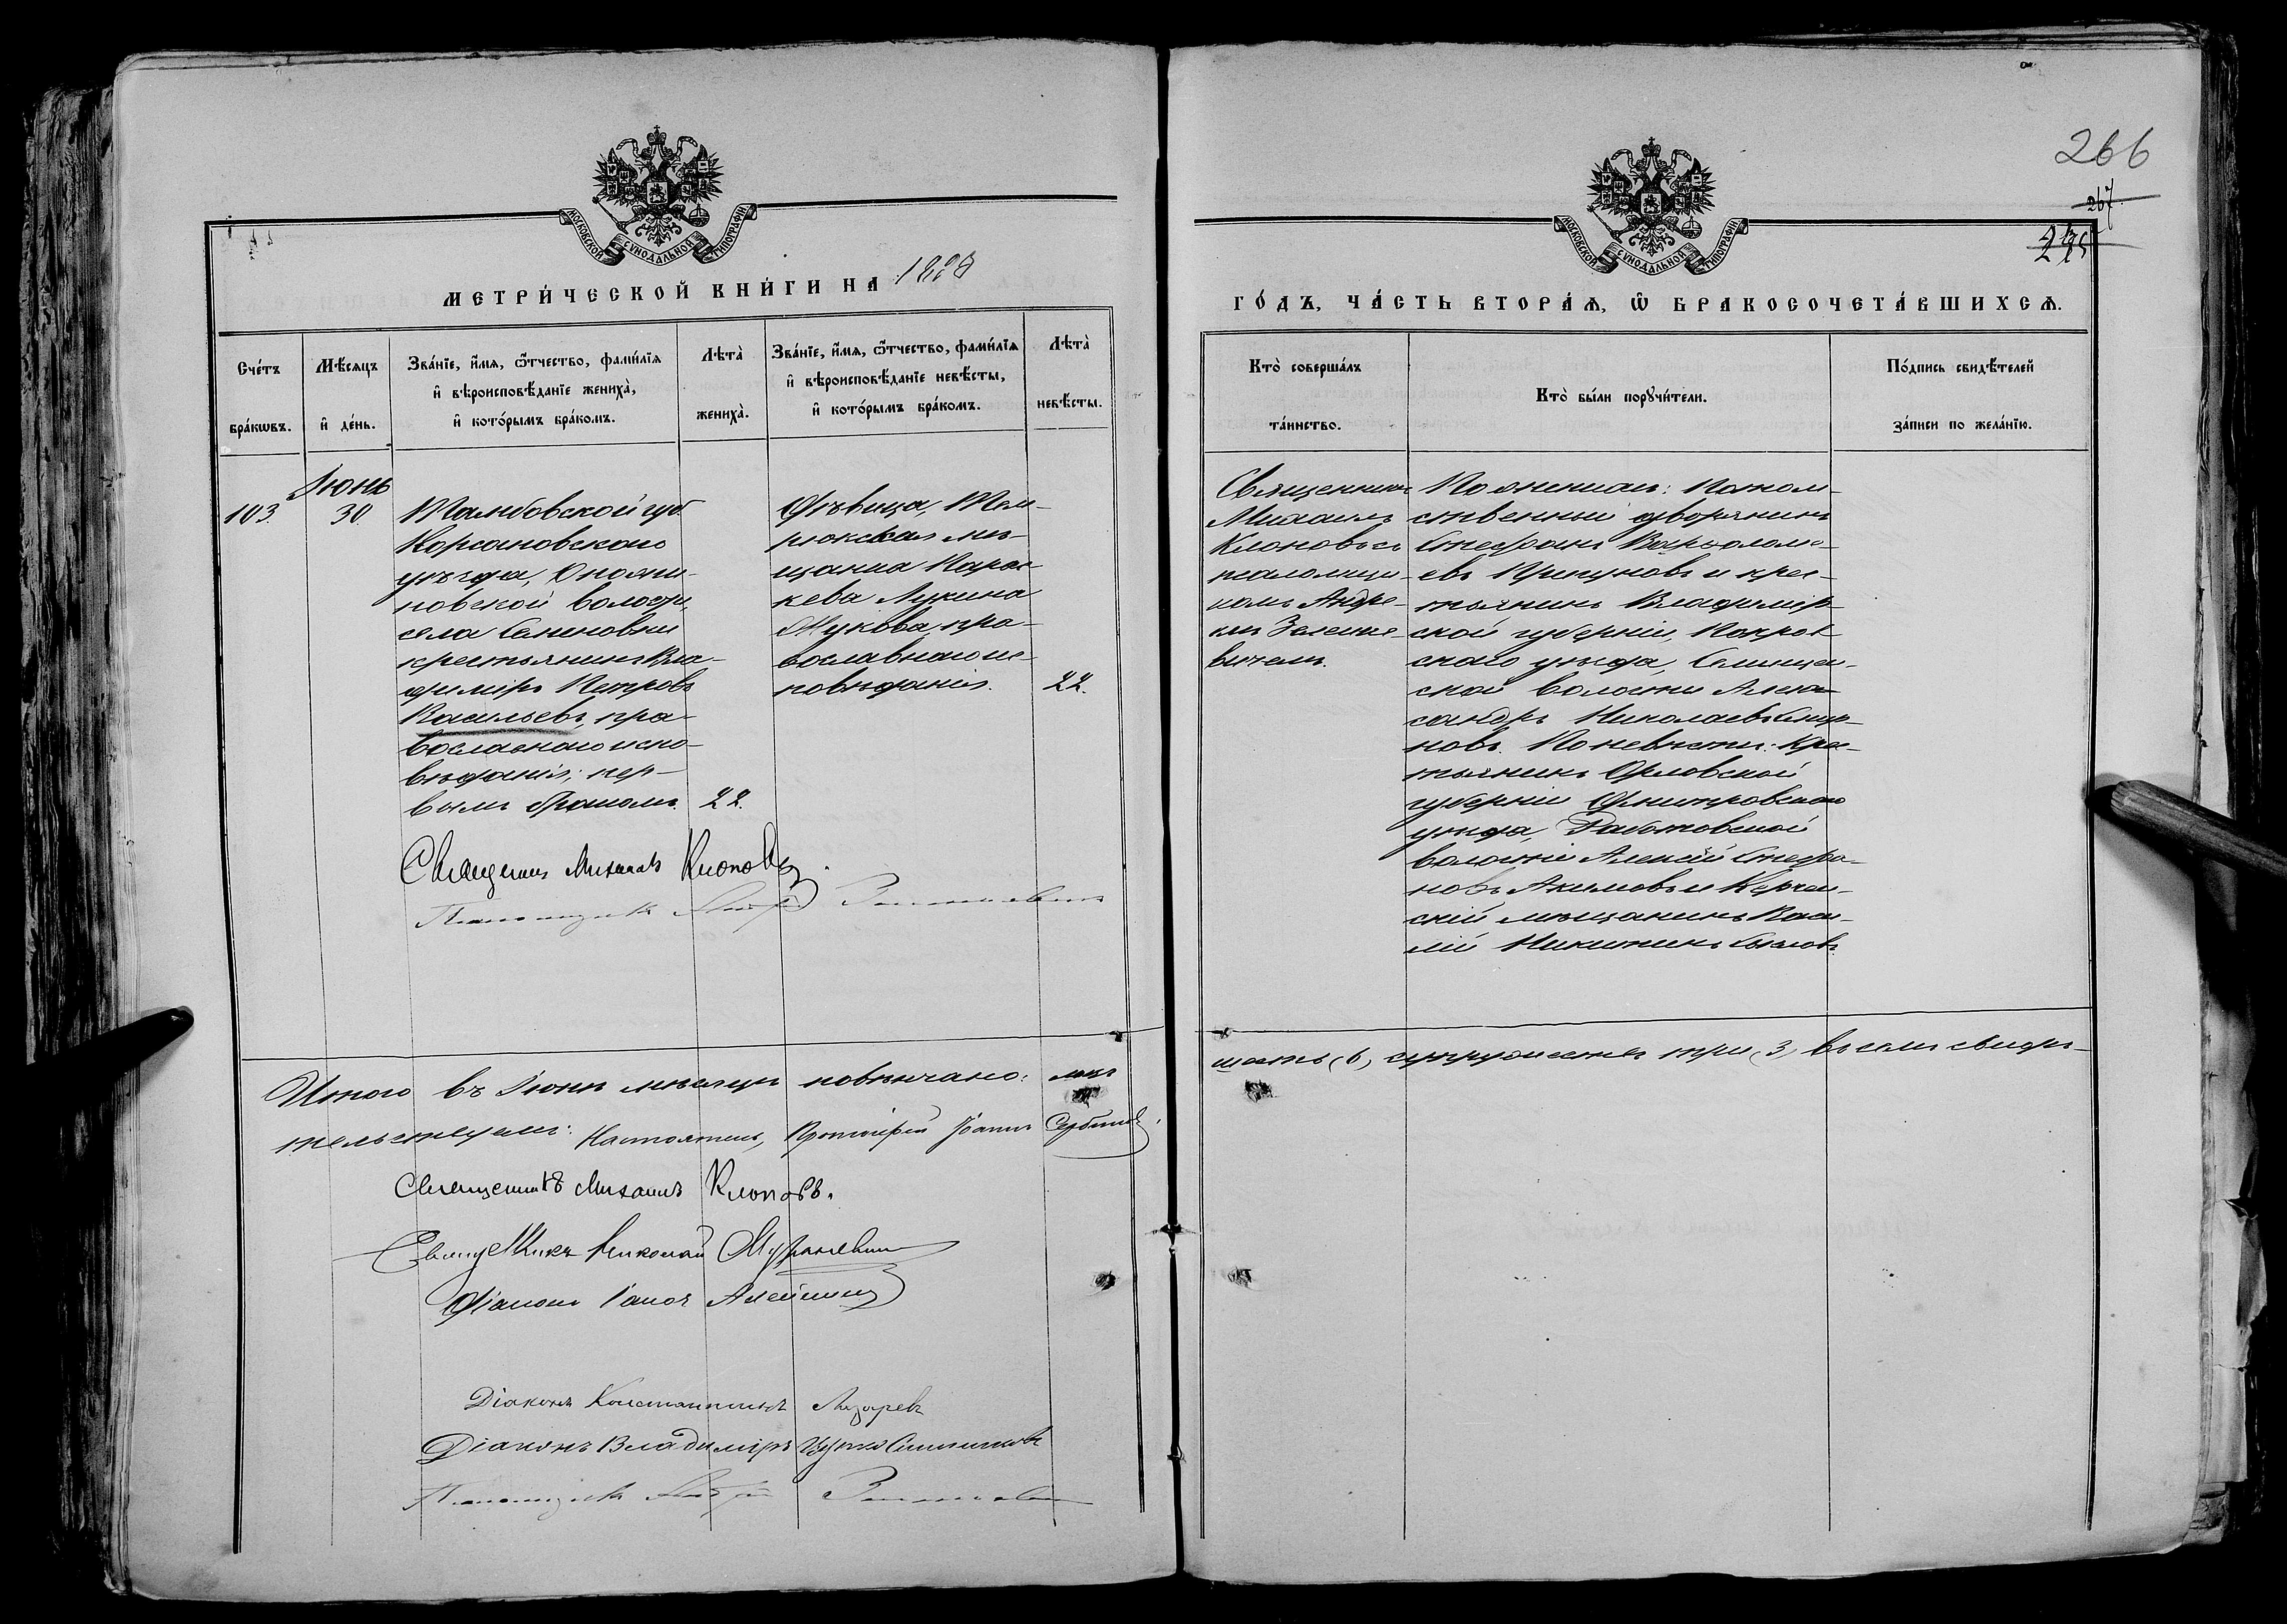 МОСКОВСКОЙ СѴНОДАЛЬНОЙ ТИПОГРАФІИ
МЕТРИ́ЧЕСКОЙ КНИ́ГИ НА
Сче́тъ бра́кѡвъ.
Мѣ́сяцъ и҆ де́нь.
Зва́нїе, и҆́мѧ, ѻ҆́тчество, фами́лїѧ
и҆ вѣроисповѣ́данїе жениха̀,
и҆ кото́рымъ бра́комъ.
Лѣта̀ жениха̀.
Зва́нїе, и҆́мѧ, ѻ҆́тчество, фами́лїѧ
и҆ вѣроисповѣ́данїе невѣ́сты,
и҆ кото́рымъ бра́комъ.
Лѣта̀ невѣ́сты.
103.
Іюнь
30
Тамбовской губ.
Кирсановскаго
уѣзда,
новской волости,
села Семеновки
крестьянинъ Вла-
диміръ Петровъ
Васильевъ, пра-
вославнаго испо-
вѣданія; пер-
вымъ бракомъ.
22.
Дѣвица, Тем-
рюкская мѣ-
щанка Парас-
кева Лукина
Жукова, пра-
вославнаго ис-
повѣданія.
22.
Священникъ Михаилъ Клоповъ.
Псаломщикъ Андрей Зеленкевичъ
Итого въ Іюнѣ мѣсяцѣ повѣнчано: лицъ
тельствуемъ: Настоятель, Протоіерей Іоаннъ
Священникъ Михаилъ Клоповъ.
Священникъ Николай
Діаконъ
Діаконъ Константинъ Лазаревъ
Діаконъ Владиміръ
Псаломщикъ Андрей
266
267
275
МОСКОВСКОЙ СѴНОДАЛЬНОЙ ТИПОГРАФІИ
ГО́ДЪ, ЧА́СТЬ ВТОРА́Ѧ, Ѡ҆ БРАКОСОЧЕТА́ВШИХСѦ.
Кто̀ соверша́лъ та́инство.
Кто̀ бы́ли порꙋчи́тели.
По́дпись свидѣ́телей
за́писи по жела́нїю.
Священникъ
Михаилъ
Клоповъ съ
псаломщи-
комъ Андре-
емъ Зеленке-
вичемъ.
По женихѣ: Потом-
ственный дворянинъ
Стефанъ Варѳоломе-
евъ и крес-
тьянинъ Владимір-
ской губерніи, Покров-
скаго уѣзда,
ской волости Алек-
сандръ Николаевъ Смир-
новъ. По невѣстѣ: Крес-
тьянинъ Орловской
губерніи Дмитровскаго
уѣзда,
волости Алексѣй Стефа-
новъ Акимовъ и Керчен-
скій мѣщанинъ Васи-
лій Никитинъ
шесть (6), супружествъ три (3), въ семъ свидѣ-